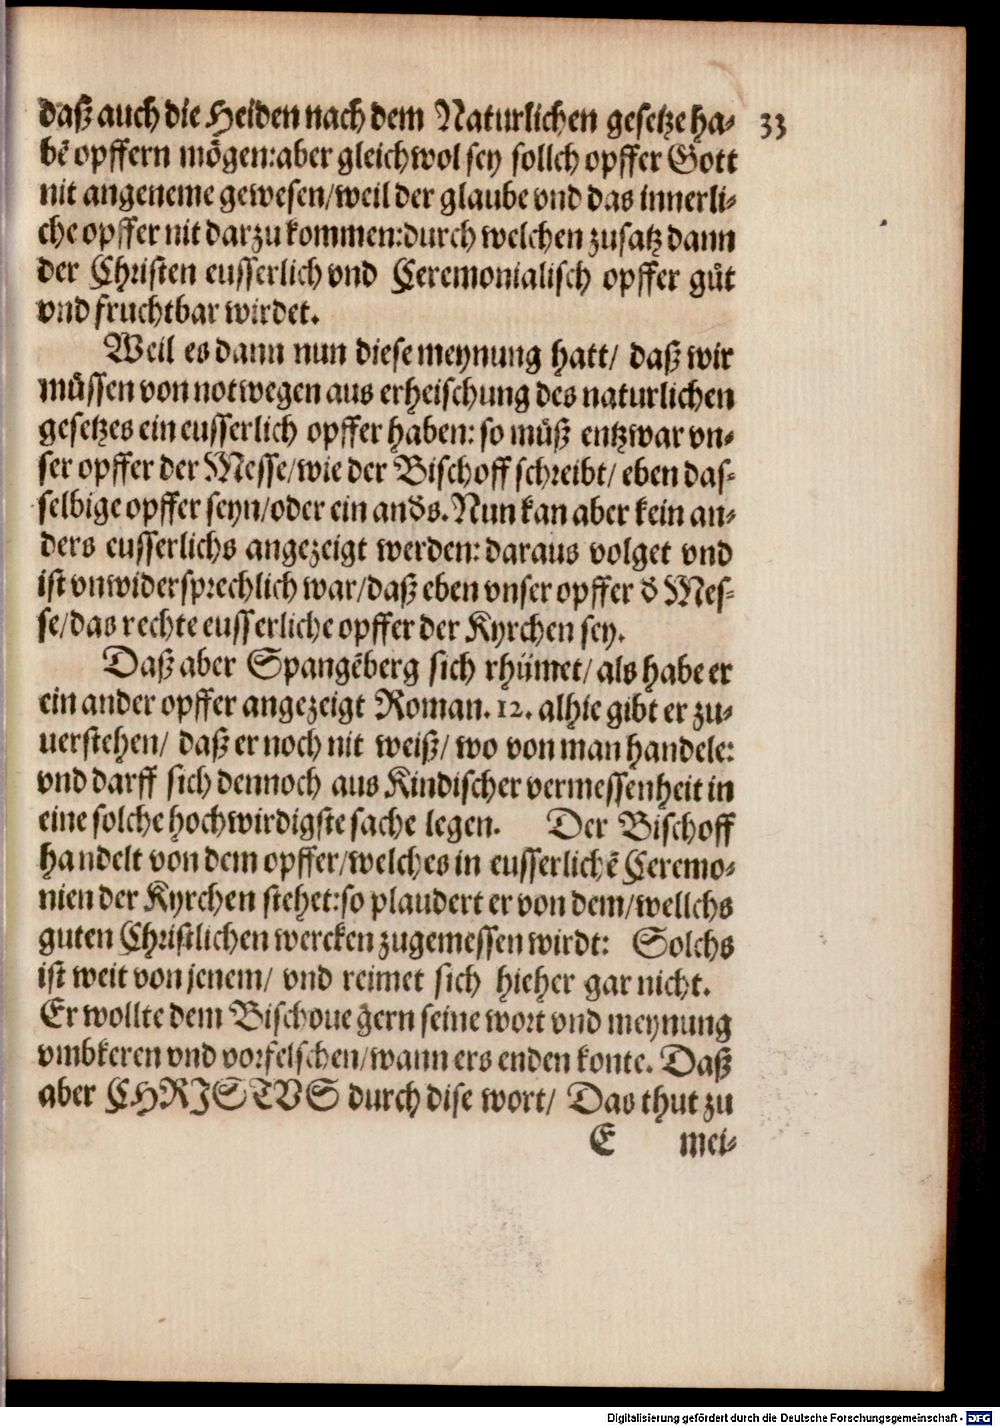 daß auch die Heiden nach dem Naturlichen gesetze ha- 33
bẽ opffern mögen: aber gleichwol sey sollch opffer Gott
nit angeneme gewesen/ weil der glaube vnd das innerli-
che opffer nit darzu kommen: durch welchen zusatz dann
der Christen eusserlich vnd Ceremonialisch opffer gůt
vnd fruchtbar wirdet.
Weil es dann nun diese meynung hatt/ daß wir
müssen von notwegen aus erheischung des naturlichen
gesetzes ein eusserlich opffer haben: so můß entzwar vn-
ser opffer der Messe/ wie der Bischoff schreibt/ eben das-
selbige opffer seyn/ oder ein anđs. Nun kan aber kein an-
ders eusserlichs angezeigt werden: daraus volget vnd
ist vnwidersprechlich war/ daß eben vnser opffer đ Mes-
se/ das rechte eusserliche opffer der Kyrchen sey.
Daß aber Spangẽberg sich rhümet/ als habe er
ein ander opffer angezeigt Roman. 12. alhie gibt er zu-
uerstehen/ daß er noch nit weiß/ wo von man handele:
vnd darff sich dennoch aus Kindischer vermessenheit in
eine solche hochwirdigste sache legen. Der Bischoff
handelt von dem opffer/ welches in eusserlichẽ Ceremo-
nien der Kyrchen stehet: so plaudert er von dem/ wellchs
guten Christlichen wercken zugemessen wirdt: Solchs
ist weit von jenem/ vnd reimet sich hieher gar nicht.
Er wollte dem Bischoue gern seine wort vnd meynung
vmbkeren vnd vorfelschen/ wann ers enden konte. Daß
aber CHRISTVS durch dise wort/ Das thut zu
E mei-
Digitalisierung gefördert durch die Deutsche Forschungsgemeinschaft - DFG